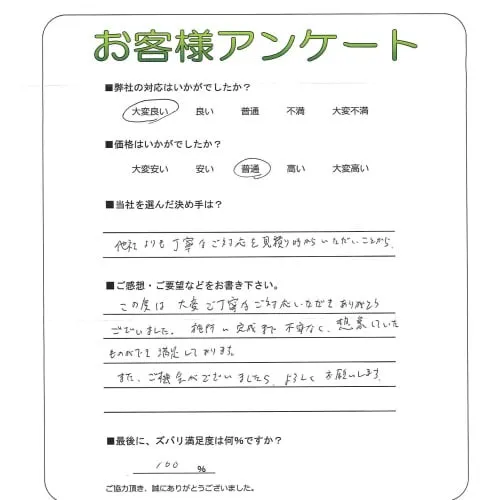 お客様アンケート
■弊社の対応はいかがでしたか?
大変良い 良い 普通 不満 大変不満
■価格はいかがでしたか?
大変安い 安い 普通 高い 大変高い
■当社を選んだ決め手は?
他社よりも丁寧なご対応を見積り時からいただいことから、
■ご感想・ご要望などをお書き下さい。
この度は大変ご丁寧なご対応いただきありがとう
ございました。 完成まで不安なく、想像していた
ものができ満足しております。
また、ご機会がございましたら、よろしくお願いします。
■最後に、ズバリ満足度は何%ですか?
100 %
ご協力頂き、誠にありがとうございました。